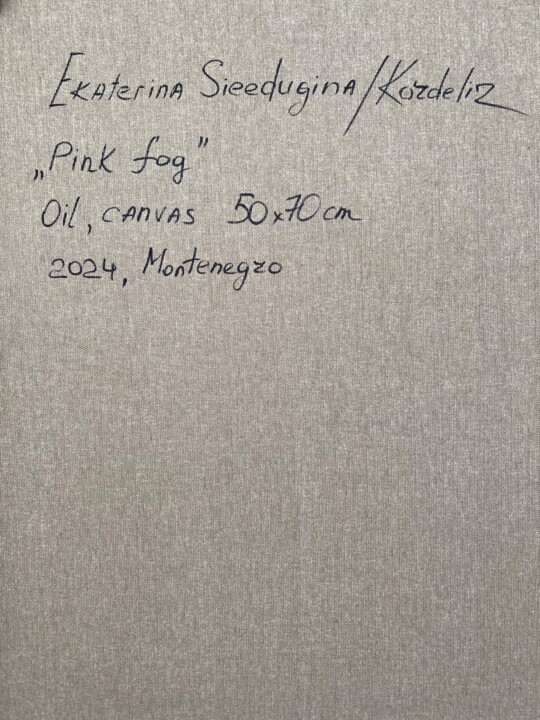 Ekaterina Sieedugina/Kordeliz
„Pink fog”
Oil, canvas 50x70 cm
2024, Montenegro